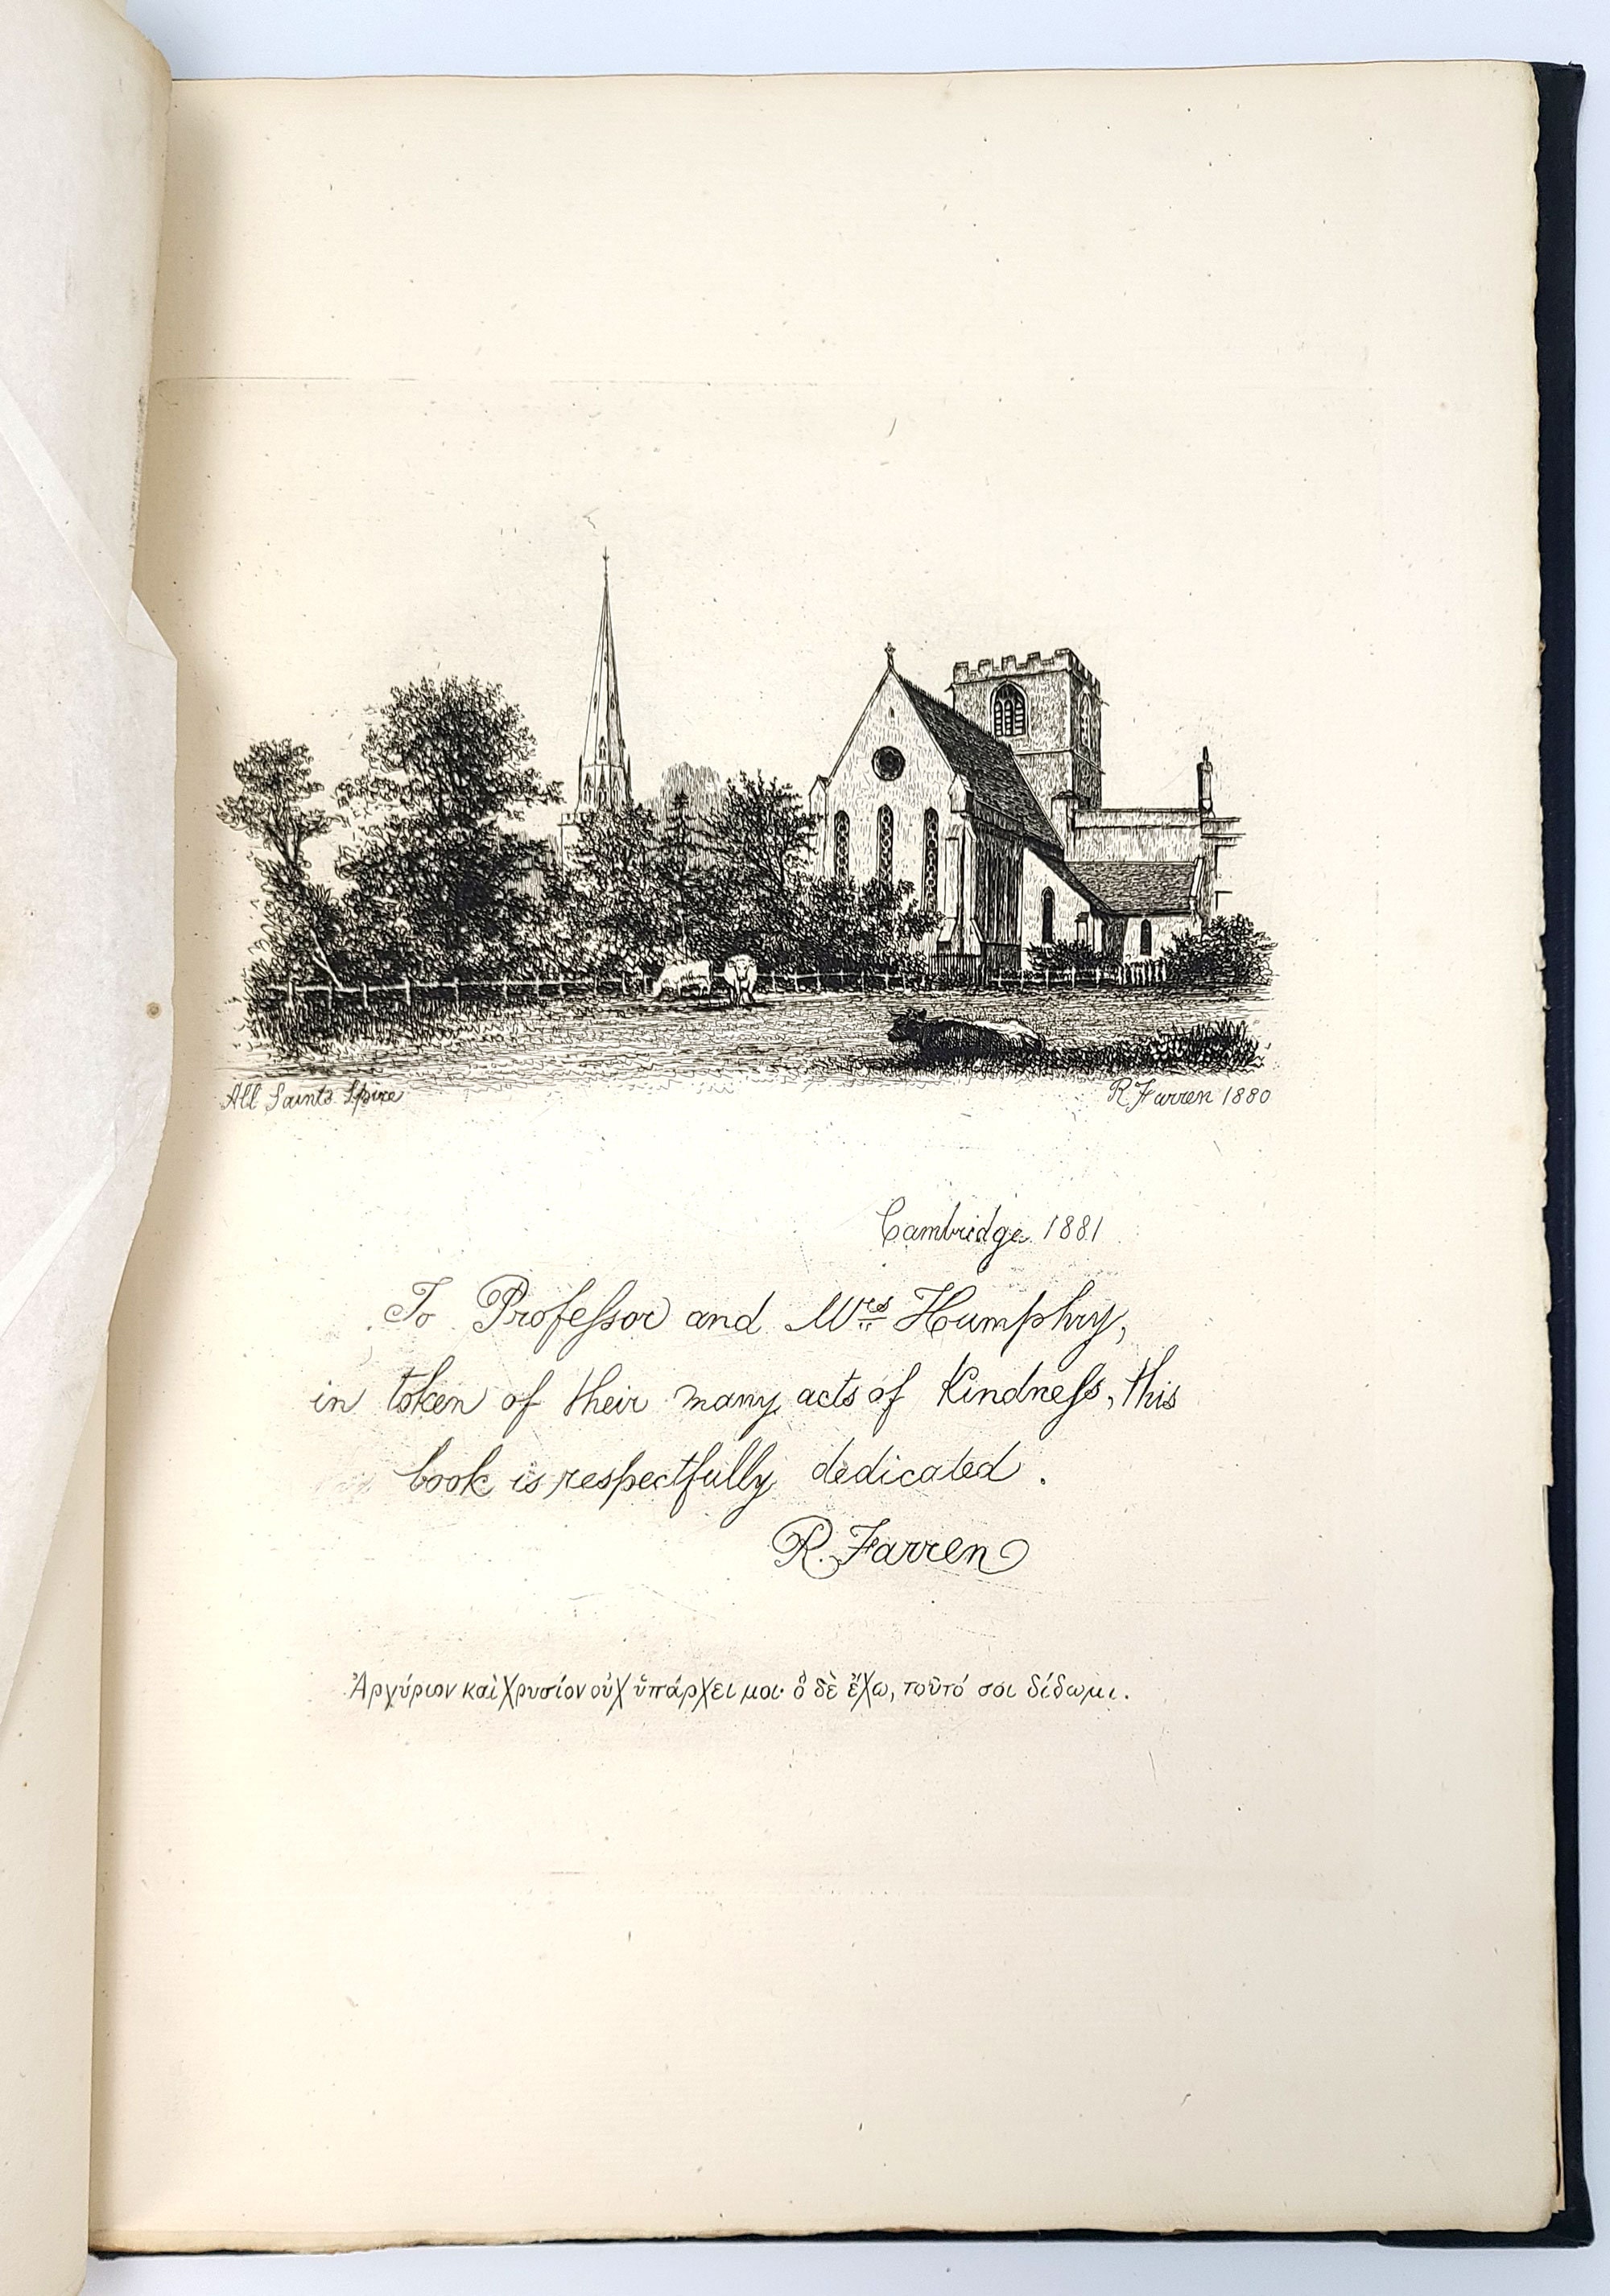 All Saints Spire
R Farren 1880
Cambridge 1881
To Profeſsor and Mrs Humphry,
in token of their many acts of Kindneſs, this
book is respectfully dedicated.
R. Farren
Ἀργύριον καὶ χρυσίον οὐχ ὑπάρχει μοι· ὃ δὲ ἔχω, τοῦτό σοι δίδωμι.